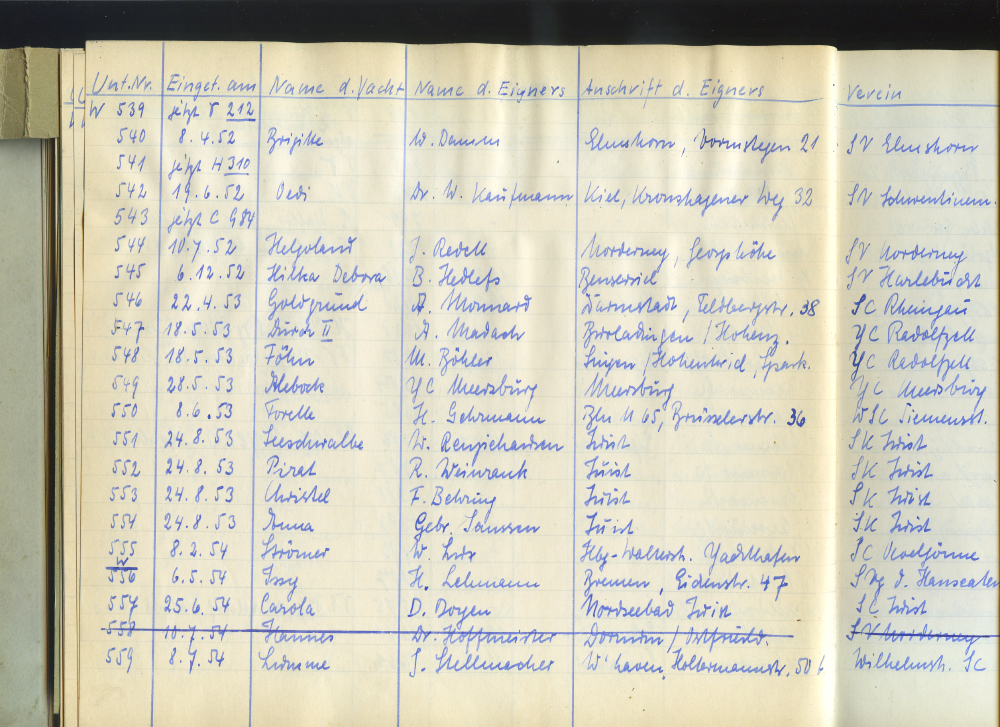 Unt.Nr. Einget. am Name d. Yacht Name d. Eigners Anschrift d. Eigners Verein
W 539 jetzt T 212
540 8.4.52 Brigitte W. Damm Elmshorn, Vormstegen 21 SV Elmshorn
541 jetzt H 310
542 19.6.52 Oedi Dr. W. Kaufmann Kiel, Kronshagener Weg 32 SV Schwentinem.
543 jetzt C 984
544 10.7.52 Helgoland J. Redell Norderney, Georgshöhe SV Norderney
545 6.12.52 Hilka Debora B. Hedlefs Bensersiel SV Harlebucht
546 22.4.53 Goldgrund A. Momard Darmstadt, Feldbergstr. 38 SC Rheingau
547 18.5.53 Durch II A. Madach Burladingen / Hohenz. YC Radolfzell
548 18.5.53 Föhn M. Böhler Singen / Hohentwiel, Spark. YC Radolfzell
549 28.5.53 Alebock YC Meersburg Meersburg YC Meersburg
550 8.6.53 Forelle H. Gehrmann Bln N 65, Brüsselerstr. 36 WSC Siemensst.
551 24.8.53 Seeschwalbe W. Juist SK Juist
552 24.8.53 Pirat R. Weinrank Juist SK Juist
553 24.8.53 Christel F. Behring Juist SK Juist
554 24.8.53 Anna Gebr. Janssen Juist SK Juist
555 8.2.54 Störmer W. Lux Hbg-Walkersh. Yachthafen SC
W
556 6.5.54 Issy H. Lehmann Bremen, Eidenstr. 47 SVg d. Hanseaten
557 25.6.54 Carola D. Doyen Nordseebad Juist SC Juist
558 10.7.54 Hannes Dr. Hoffmeister Dornum / Ostfriesld. SV Norderney
559 8.7.54 Lumme J. Stellmacher W'haven, Holtermannstr. 50 Wilhelmsh. SC